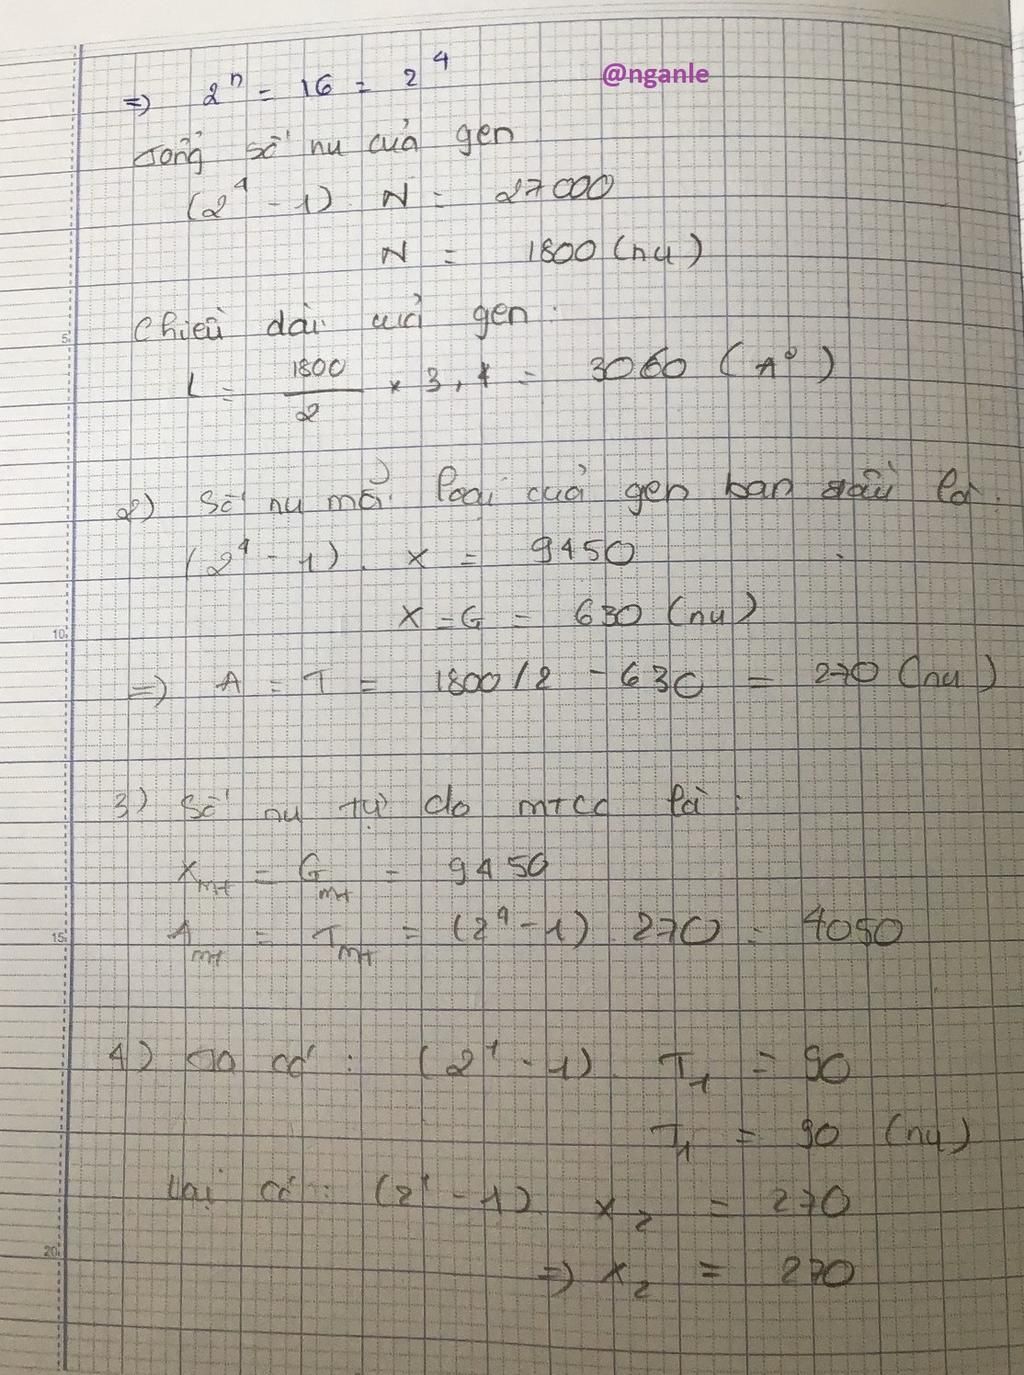 @nganle
=> 2^n = 16 = 2^4
Tổng số nu của gen
(2^4 - 1). N = 27000
N = 1800 (nu)
5
Chiều dài của gen:
L = 1800/2 × 3,4 = 3060 (A°)
2) Số nu mỗi loại của gen ban đầu là.
(2^4 - 1). X = 9450
10
X = G = 630 (nu)
=> A = T = 1800/2 - 630 = 270 (nu)
3) Số nu tự do mtcc là:
Xmt = Gmt = 9450
15
Amt = Tmt = (2^4 - 1). 270 = 4050
4) Ta có: (2^1 - 1). T1 = 90
T1 = 90 (nu)
Lại có: (2^1 - 1) X2 = 270
20
=> X2 = 270